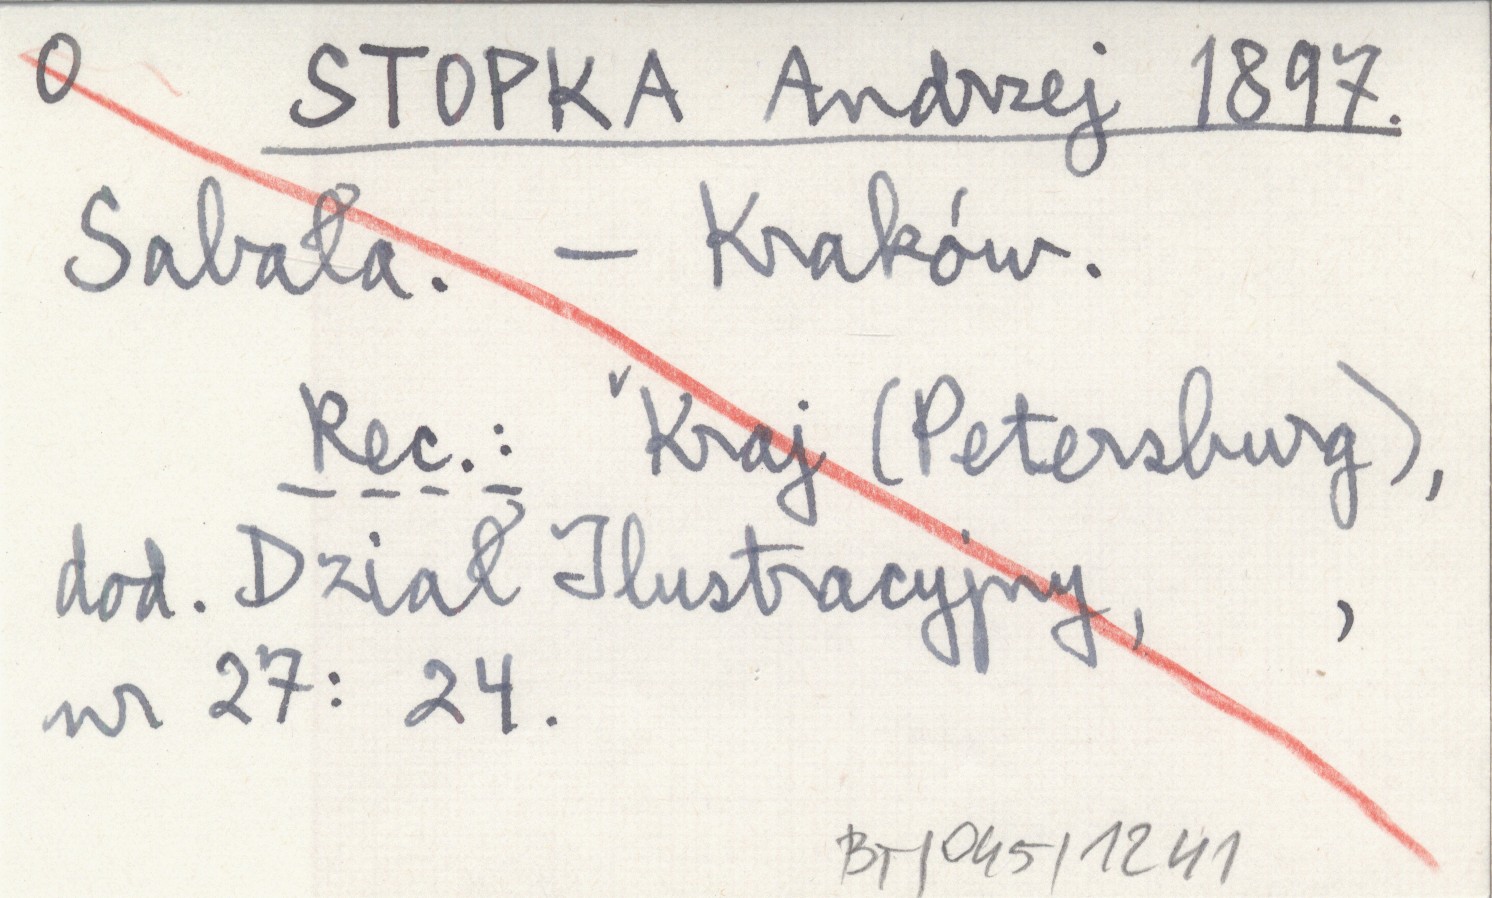 O STOPKA Andrzej 1897.
Sabała. — Kraków.
Rec.: ᵛKraj (Petersburg),
dod. Dział Ilustracyjny,     ,
nr 27: 24.
BT/045/1241